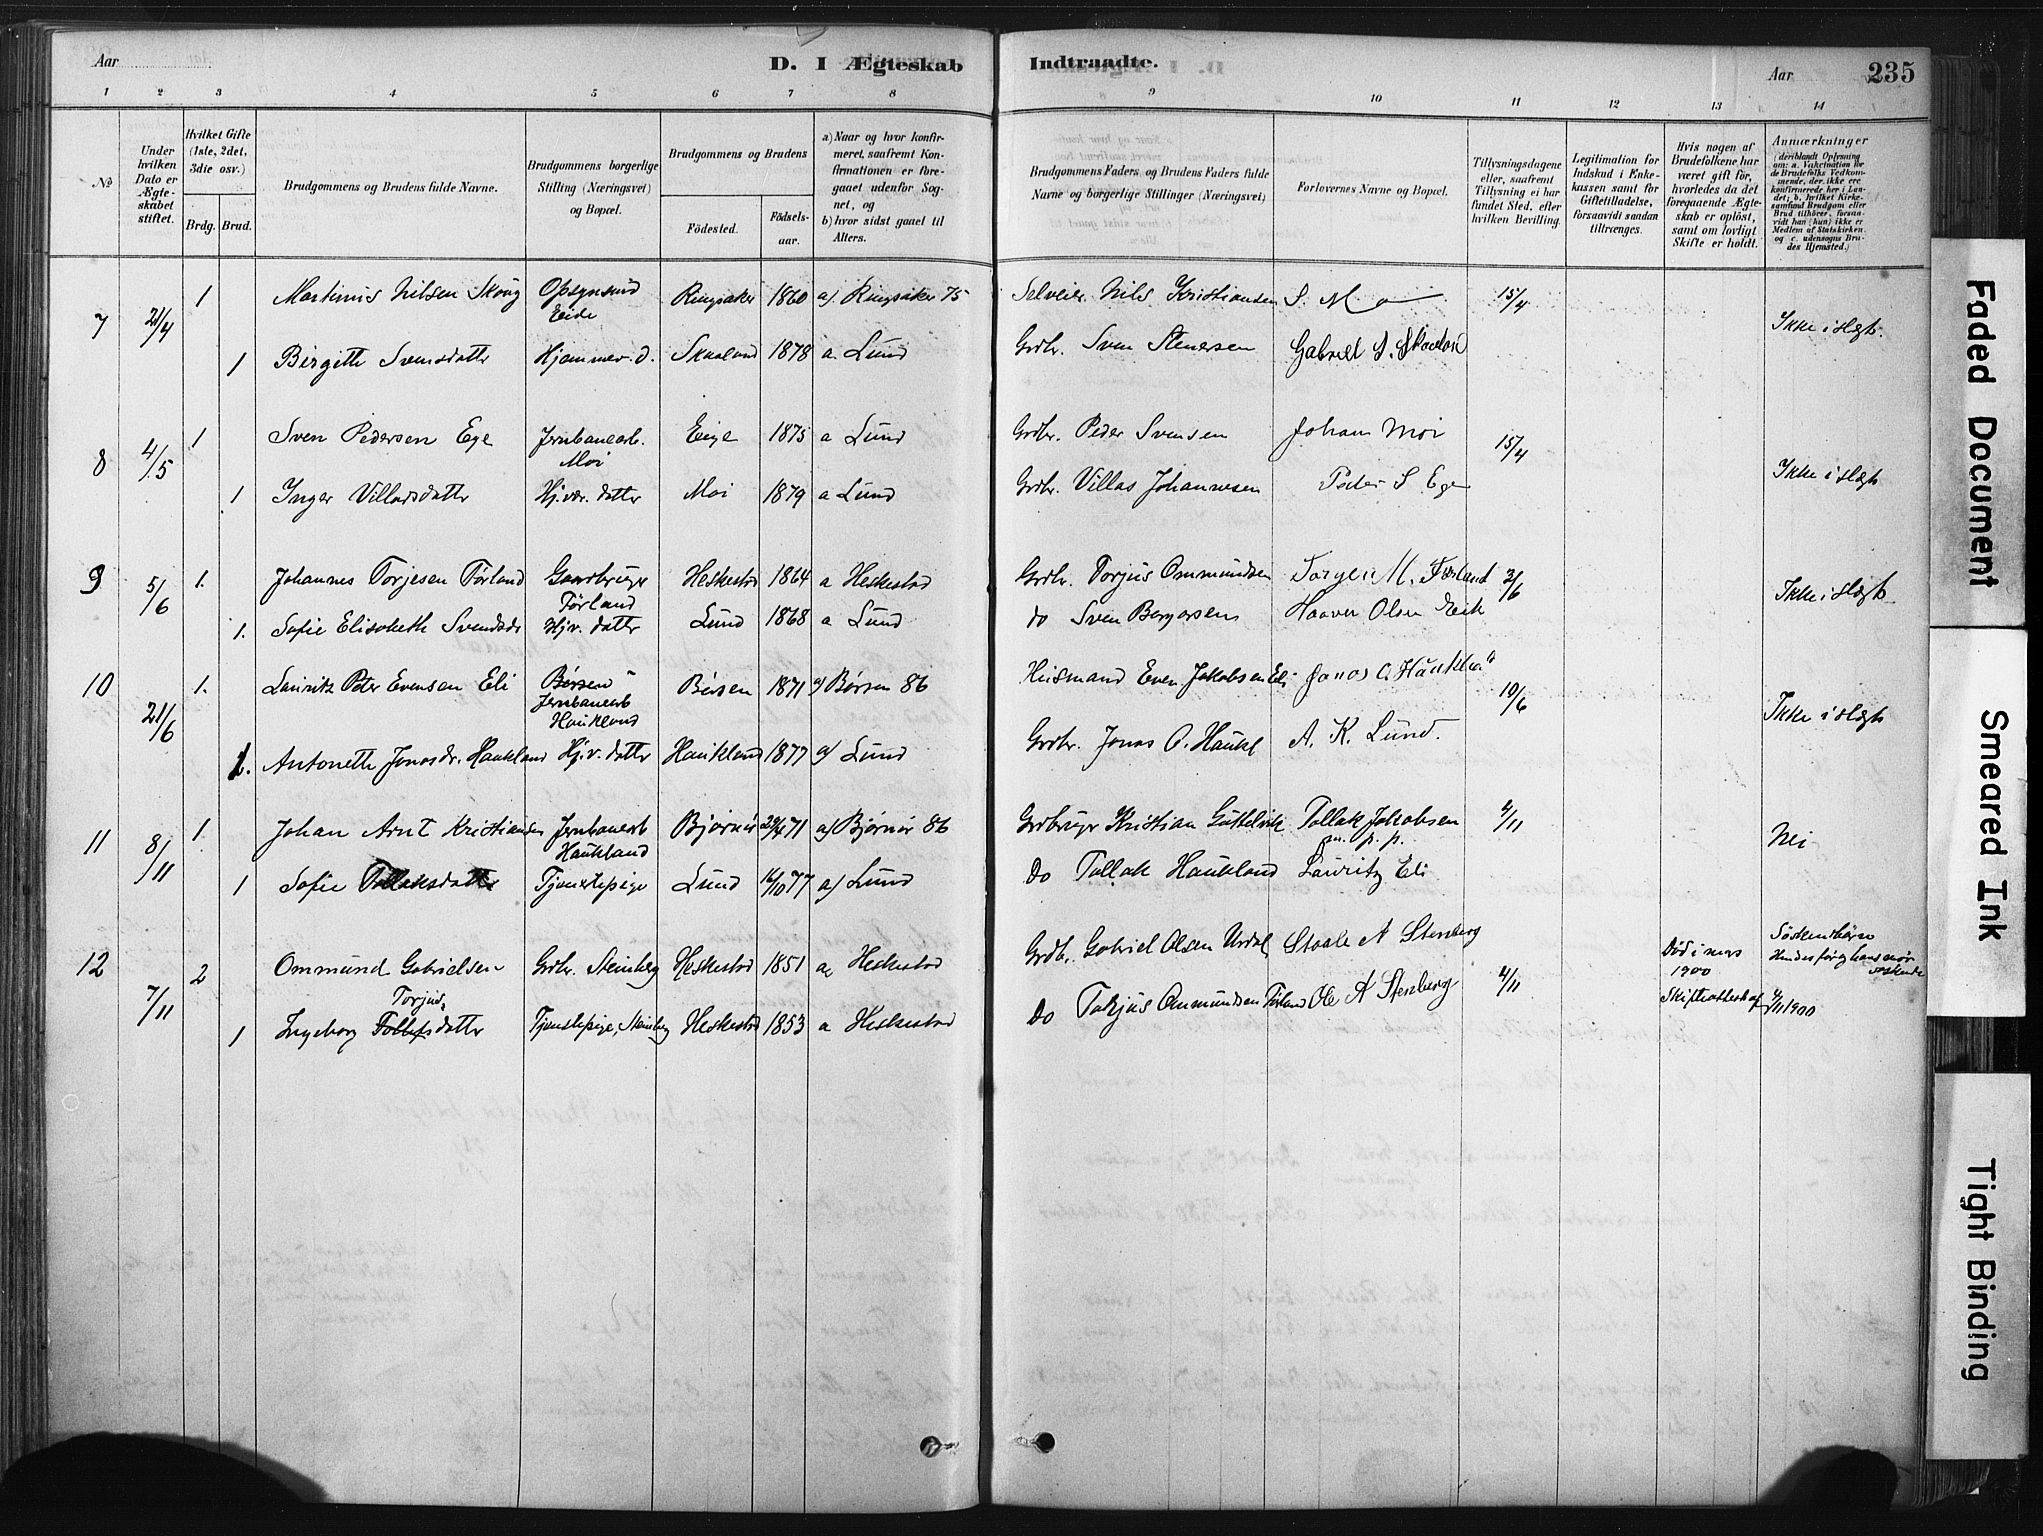 Aar
D. I Ægteskab
Indtraadte.
Aar
235
1 2 3 4 5 6 7 8 9 10 11 12 13 14
No
Under hvilken Dato er Ægteskabet stiftet.
Hvilket Gifte (1ste, 2det, 3die osv.)
Brdg. Brud.
Brudgommens og Brudens fulde Navne.
Brudgommens borgerlige Stilling (Næringsvei) og Bopæl.
Brudgommens og Brudens
Födested.
Födsels-aar.
a) Naar og hvor konfirmeret, saafremt Konfirmationen er foregaaet udenfor Sognet, og
b) hvor sidst gaaet til Alters.
Brudgommens Faders og Brudens Faders fulde Navne og borgerlige Stillinger (Næringsvei)
Forlovernes Navne og Bopæl.
Tillysningsdagene eller, saafremt Tillysning ei har fundet Sted, efter hvilken Bevilling.
Legitimation for Indskud i Enkekassen samt for Giftetilladelse, forsaavidt saadan tiltrænges.
Hvis nogen af Brudefolkene har været gift för, hvorledes da det foregaaende Ægteskab er oplöst, samt om lovligt Skifte er holdt.
Anmærkninger
(deriblandt Oplysning om: a. Vakcination for de Brudefolks Vedkommende, der ikke ere konfirmerede her i Landet; b. hvilket Kirkesamfund Brudgom eller Brud tilhörer, forsaavidt han (hun) ikke er Medlem af Statskirken, og c. udensogns Brudes Hjemsted.)
7 21/4 1 Martinius Nilsen Skoug Opsynsmd Eide Ringsaker 1860 a) Ringsaker 75 Selveier Nils Kristiansen 15/4 Ikke i slægt.
1 Birgitte Svensdatter Hjemmev. d. Skaaland 1878 a. Lund Grdbr. Sven Stenersen Gabriel S. Skaaland
8 4/5 1 Sven Pedersen Ege Jernbanearb. Moi Eige 1875 a Lund Grdbr. Peder Svensen Johan Moi 15/4 Ikke i slægt
1 Inger Villadsdatter Hjvær. datter Moi 1879 a Lund Grdbr. Villas Johannesen Peder S Ege
9 5/6 1. Johannes Torjesen Förland Gaardbruger Förland Heskestad 1864 a Heskestad Grdbr. Torjus Ommundsen Torger M. Förland 3/6 Ikke i slægt
1. Sofie Elisabeth Svendsdr Hjv. datter Lund 1868 a Lund do Sven Bergersen Haaver Olsen Eik
10 21/6 1. Lauritz Peter Evensen Eli Börsen Jernbanearb Haukland Börsen 1871 a) Börsen 86 Husmand Even Jakobsen Eli Jonas O Haukland 10/6 Ikke i slægt
1. Antonette Jonasdr. Haukland Hj.v. datter Haukland 1877 a) Lund Grdbr. Jonas O. Haukl A. K. Lund.
11 8/11 1. Johan Arnt Kristiansen Jernbanearb Haukland Bjørnör 29/4 71 a) Bjørnör 86 Grdbruger Kristian Guttelvik Tollak Jakobsen m. p. p. 4/11 Nei
1 Sofie Tollaksdatter Tjenestepige Lund 16/10 77 a) Lund Do Tollak Haukland Lauritz Eli
12 7/11 2 Ommund Gabrielsen Grdbr. Steinberg Heskestad 1851 a Heskestad Grdb. Gabriel Olsen Urdal Staale A Stenberg 4/11 Död i mars 1900 Söskendbörn Hendes far og hans mor söskende
Torjus
1 Ingeborg Tollefsdatter Tjenestepige, Steinberg Heskestad 1853 a Heskestad Do Torjus Ommundsen Förland Ole A Stenberg Skifteattest af 4/11 1900
Faded Document
Smeared Ink
Tight Binding